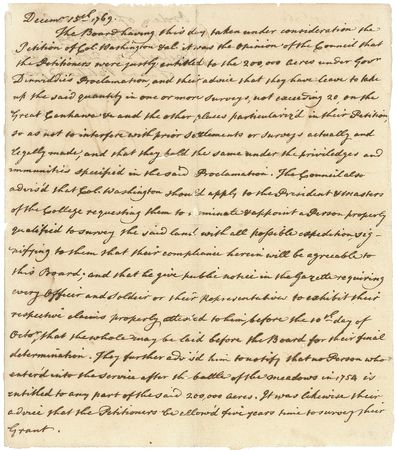 Decemr 15th 1769.
The Board having this day taken under consideration the
Petition of Col. Washington &al. it was the opinion of the Council that
the Petitioners were justly entitled to the 200,000 Acres under Govr
Dinwiddie's Proclamation, and their advice that they have leave to take
up the said quantity in one or more surveys, not exceeding 20, on the
Great Canhawa &c and the other places particulariz'd in their Petition,
so as not to interfere with prior Settlements or surveys actually and
legally made, and that they hold the same under the priviledges and
immunities specified in the said Proclamation. The Council also
advis'd that Col. Washington shou'd apply to the President & Masters
of the College requesting them to nominate & appoint a Person properly
qualified to survey the said land with all possible expedition sig-
nifying to them that their compliance herein will be agreeable to
this Board; and that he give public notice in the Gazette requiring
every Officer and Soldier or their Representative to exhibit their
respective claims properly attested to him, before the 10th day of
Octor, that the whole may be laid before the Board for their final
determination. They further advis'd him to notify that no Person who
enter'd into the Service after the battle of the meadows in 1754 is
entitled to any part of the said 200,000 acres. It was likewise their
advice that the Petitioners be allow'd five years time to survey their
Grant.